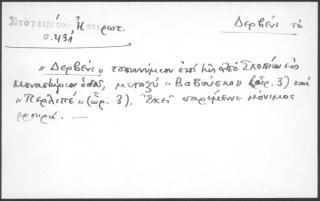 Στογειρίτου, Ἠπειρωτ.
σ. 431
Δερβένι τὸ
"Δερβένι" τοπωνύμιον ἐπὶ τῆς ἀπὸ Σκοπίων εἰς
Μοναστήριον ὁδοῦ, μεταξὺ "Βαβούσκα" (ὥρ. 3) καὶ
"Περλιπέ" (ὥρ. 3). Ἐκεῖ παρέμενε μόνιμος
φρουρά. —